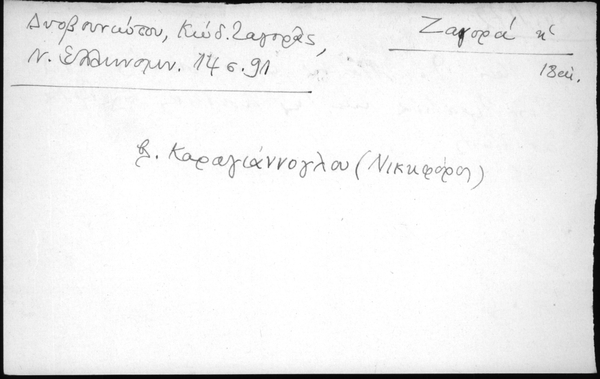 Δυοβουνιώτου, Κώδ. Ζαγοράς,
Ν. Ελληνομν. 14 σ. 91
Ζαγορά κ´
18 αι.
β. Καραγιάννογλου (Νικηφόρος)